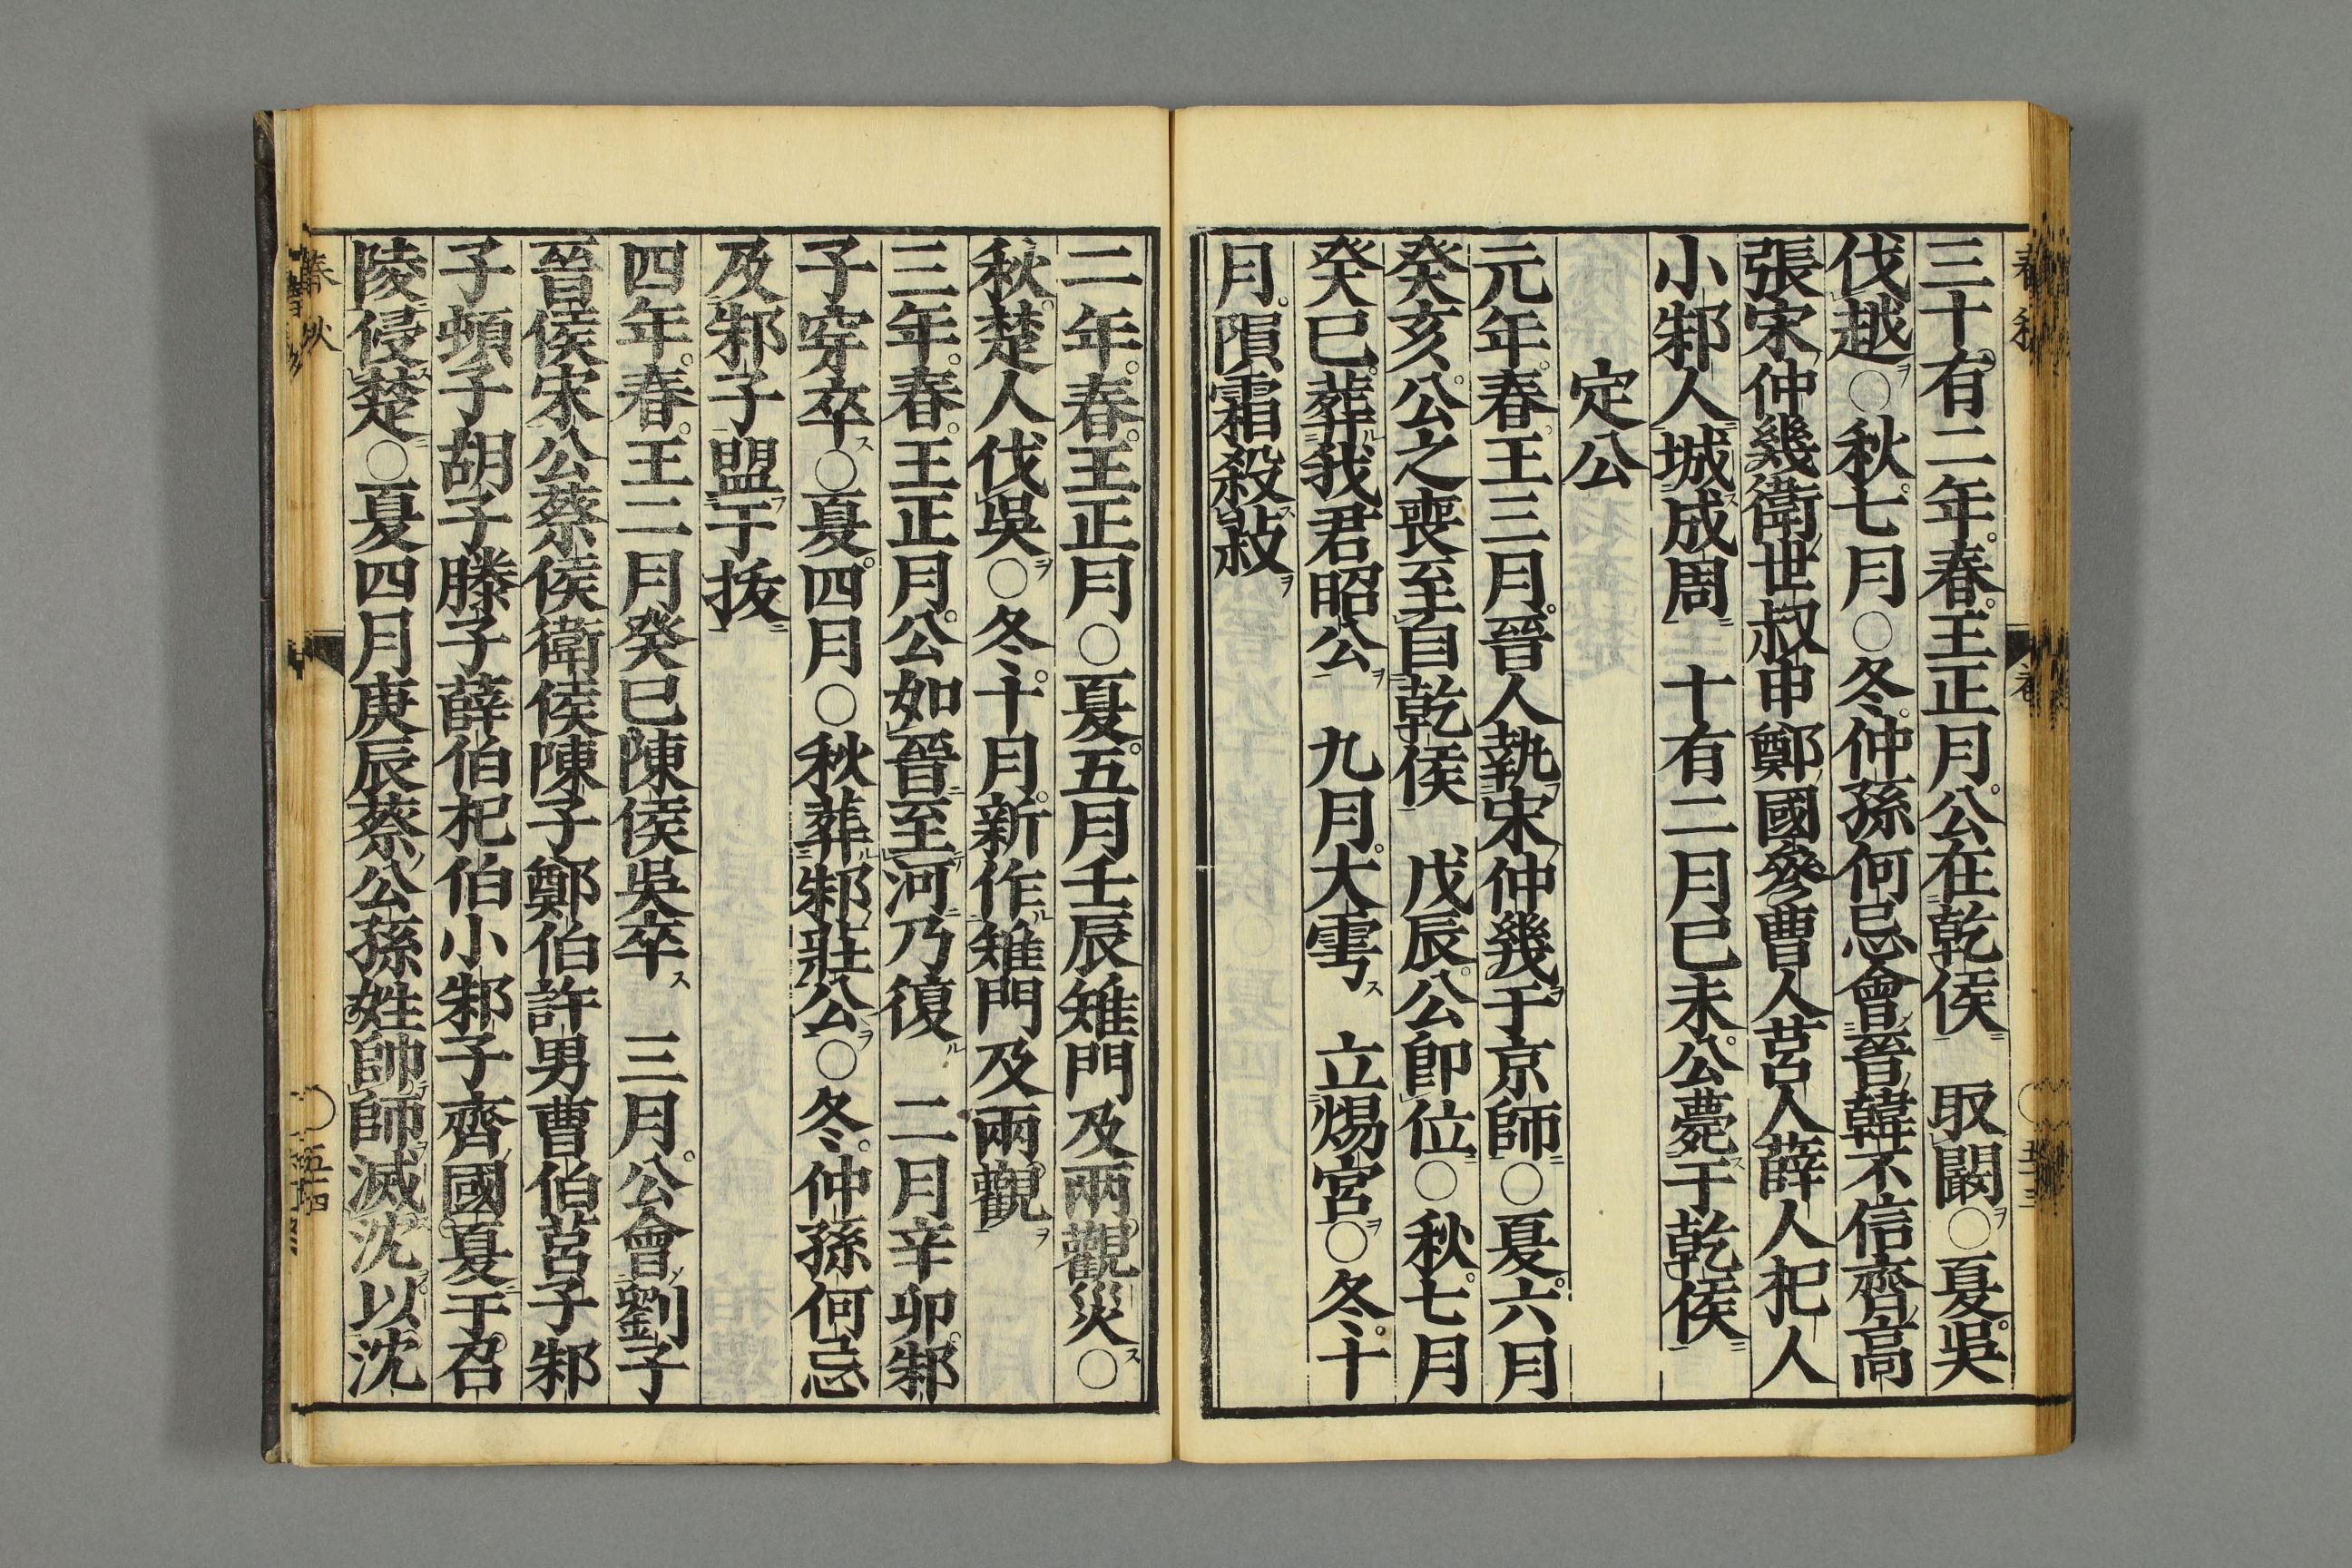 三十有二年春王正月公在乾侯　取闞○夏吳
伐越○秋七月○冬仲孫何忌會晉韓不信齊高
張宋仲幾衛世叔申鄭國參曹人莒人薛人杞人
小邾人城成周　十有二月己未公薨于乾侯
定公
元年春王三月晉人執宋仲幾于京師○夏六月
癸亥公之喪至自乾侯　戊辰公卽位○秋七月
癸巳葬我君昭公　九月大雩　立煬宮○冬十
月隕霜殺菽
二年春王正月○夏五月壬辰雉門及兩觀災○
秋楚人伐吳○冬十月新作雉門及兩觀
三年春王正月公如晉至河乃復　二月辛卯邾
子穿卒○夏四月○秋葬邾莊公○冬仲孫何忌
及邾子盟于拔
四年春王二月癸巳陳侯吳卒　三月公會劉子
晉侯宋公蔡侯衛侯陳子鄭伯許男曹伯莒子邾
子頓子胡子滕子薛伯杞伯小邾子齊國夏于召
陵侵楚○夏四月庚辰蔡公孫姓帥師滅沈以沈
春秋
五十四